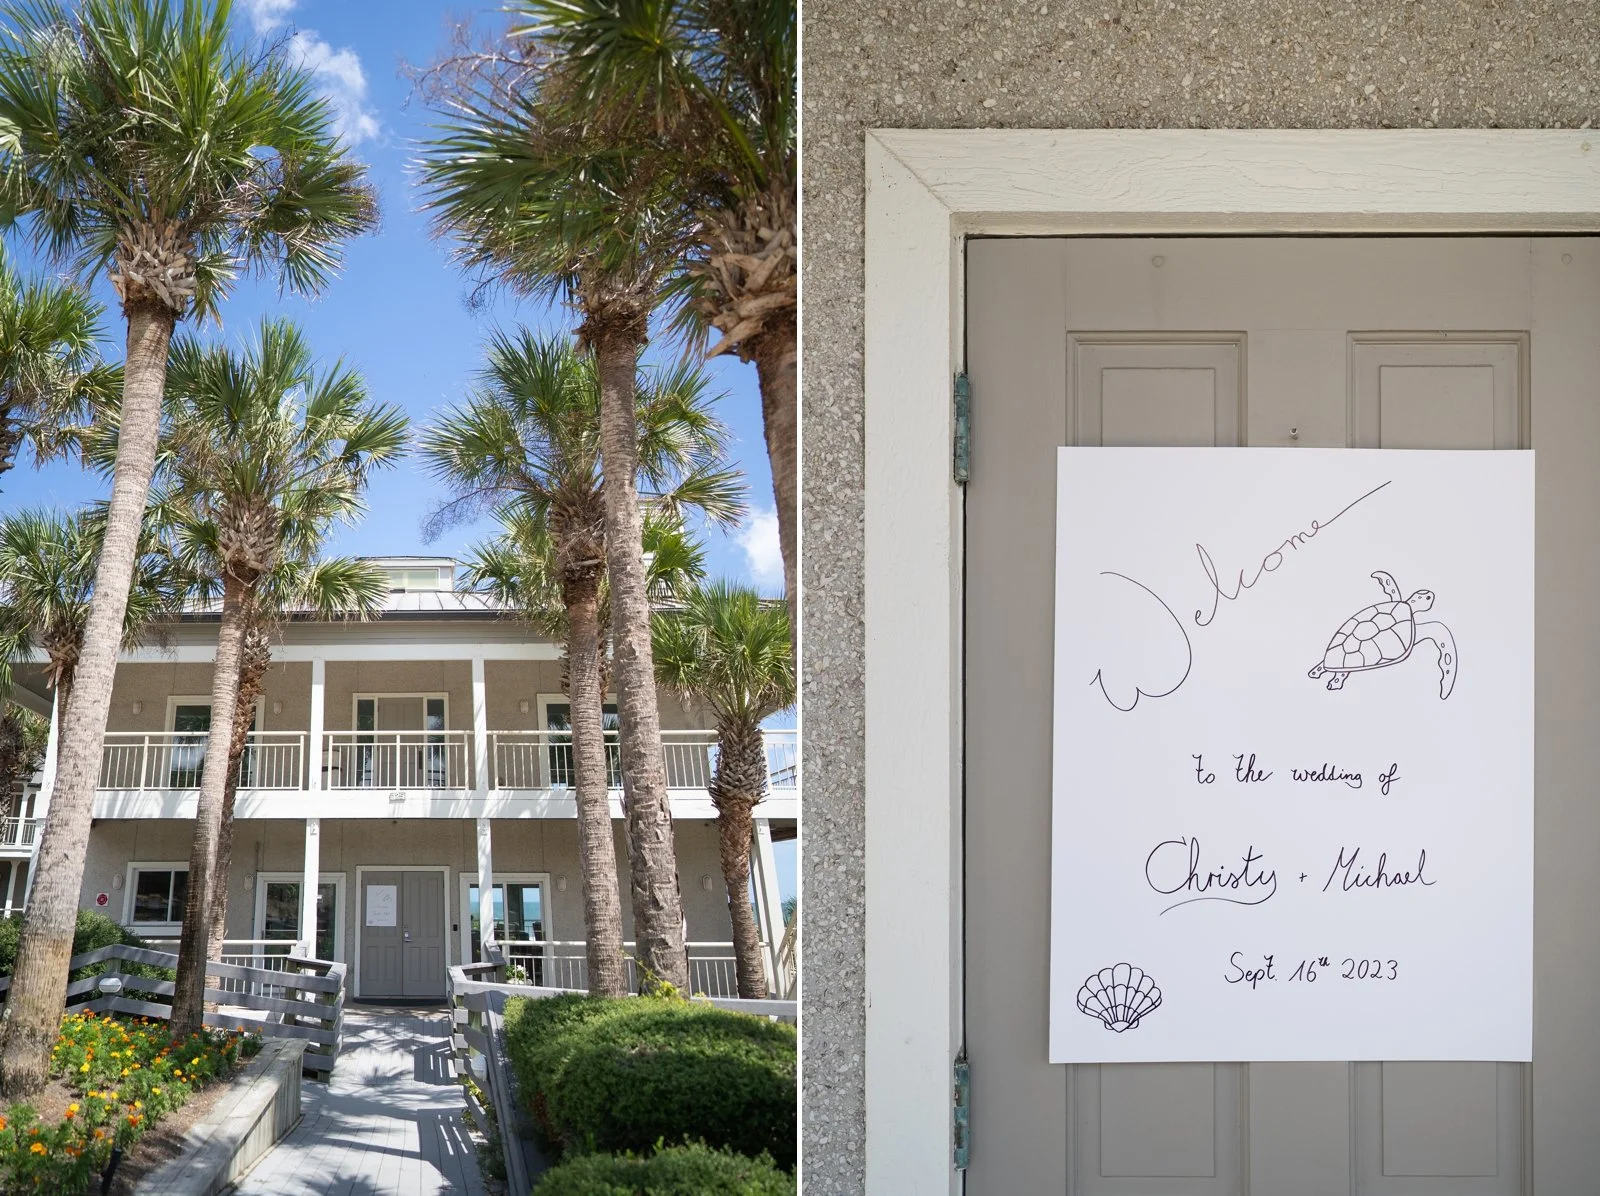 Welcome
to the wedding of
Christy + Michael
Sept. 16th 2023